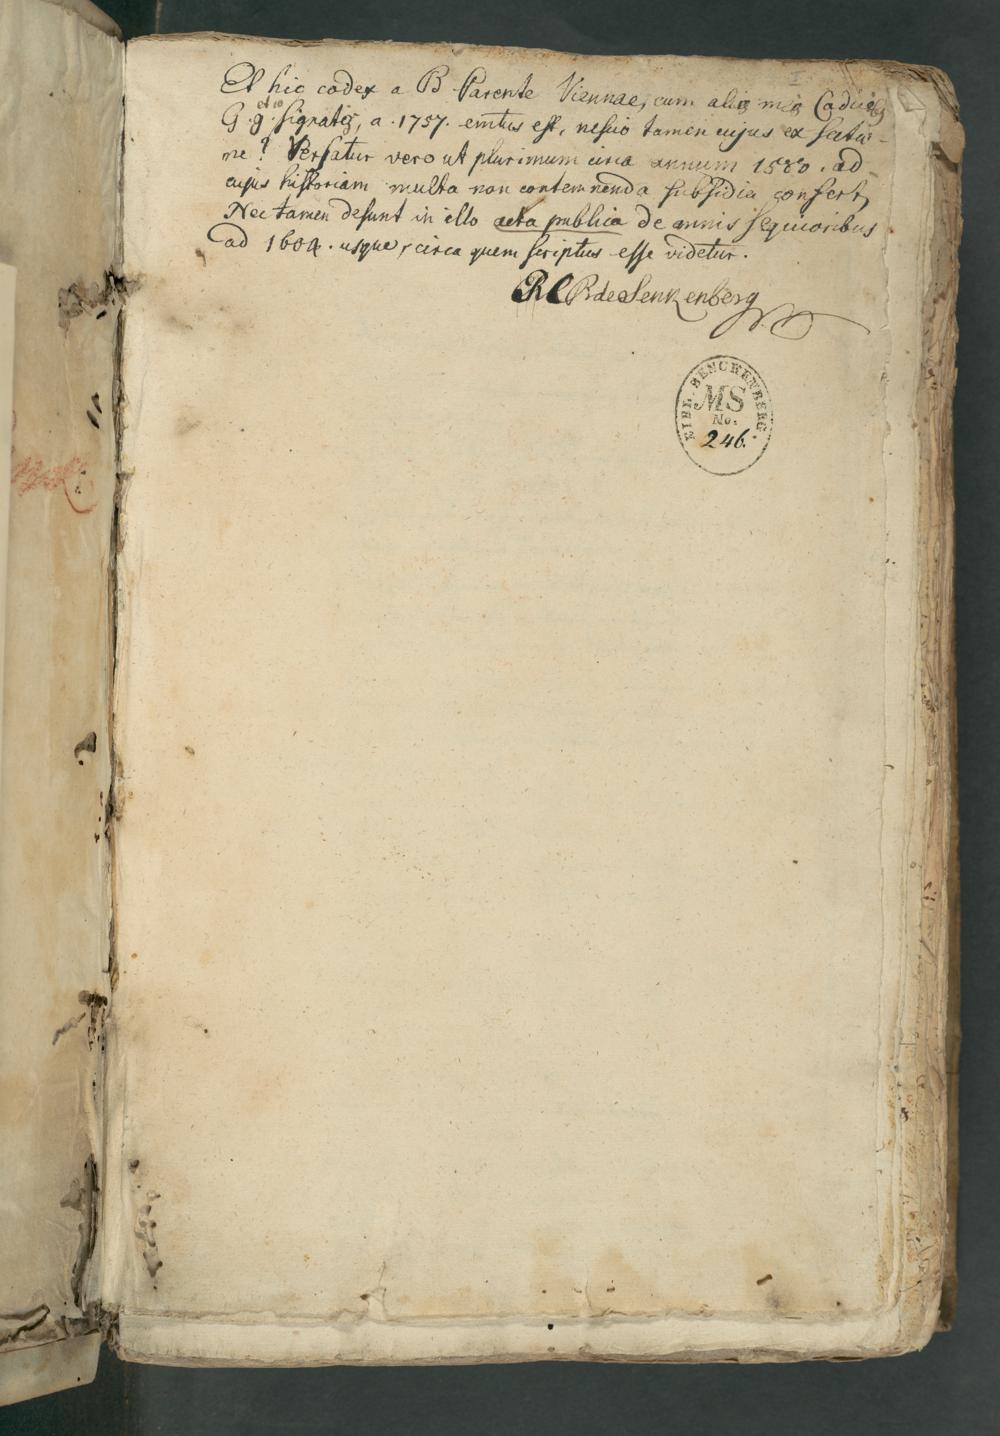 Et hic codex a B Parente Viennae, cum aliis meis Codicibus
G. g. signatis, a. 1757. emtus est, nescio tamen cujus ex sectio-
ne? Versatur vero ut plurimum circa annum 1580. ad
cujus historiam multa non contemnenda subsidia confert,
Nec tamen desunt in illo acta publica de annis sequioribus
ad 1604. usque, circa quem scriptus esse videtur.
RCB de Senkenberg
BIBL. SENCKENBERG.
MS
No.
246.